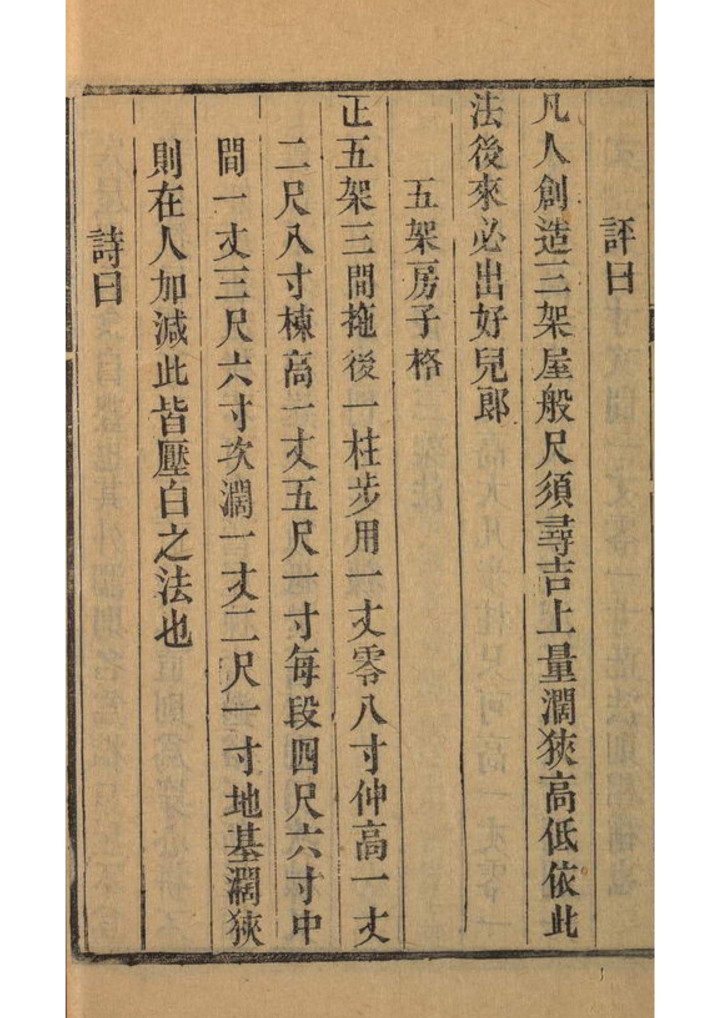 評曰
凡人創造三架屋般尺須尋吉上量濶狹高低依此
法後來必出好兒郎
五架房子格
正五架三間拖後一柱步用一丈零八寸仲高一丈
二尺八寸棟高一丈五尺一寸每段四尺六寸中
間一丈三尺六寸次濶一丈二尺一寸地基濶狹
則在人加減此皆壓白之法也
詩曰